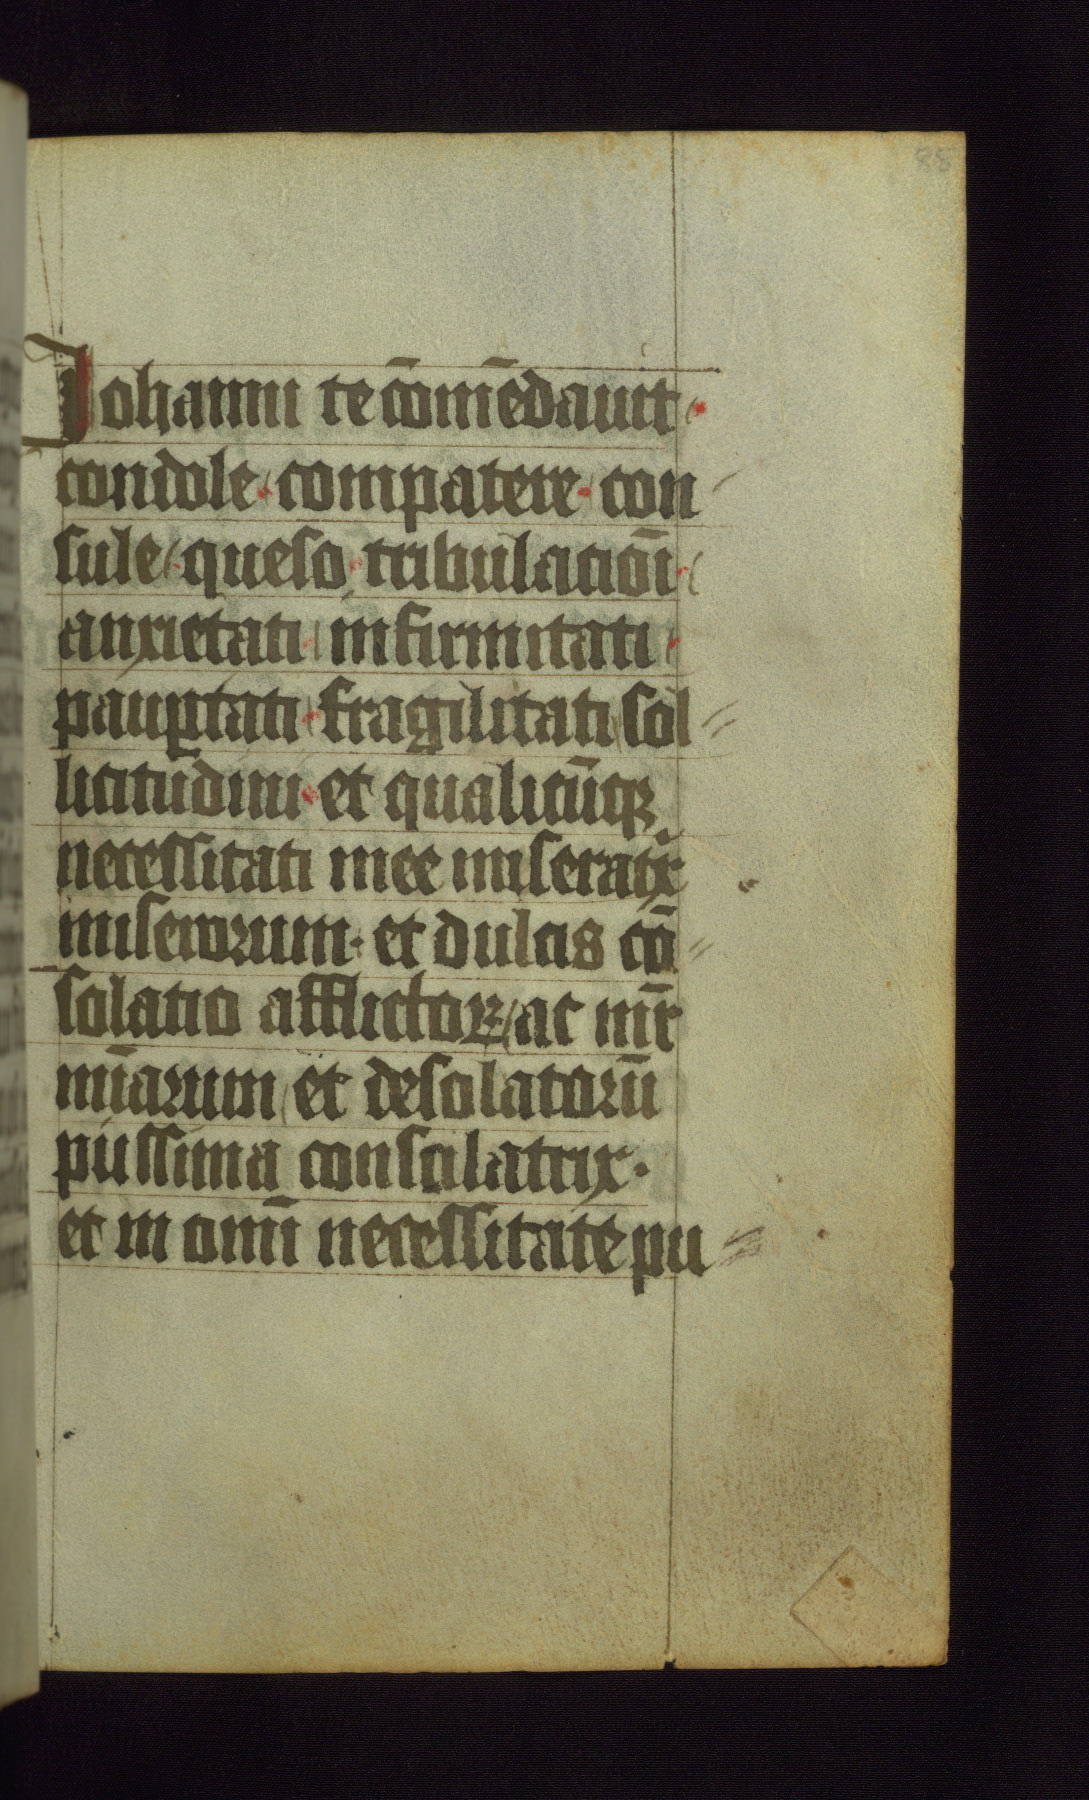 88
Johanni te cōmēdauit·
condole· compatere· con
sule· queso· tribulatiōi·
anxietati· infirmitati·
paup̱tati· fragilitati sol
licitudini· et qualicūqꝫ
necessitati mee miseratͥx
miserorum· et dulcis cō
solatio afflictoꝝ/ ac mr̄
mīarum/ et desolatorū
piissima consolatrix·
et in om̄i necessitate pu